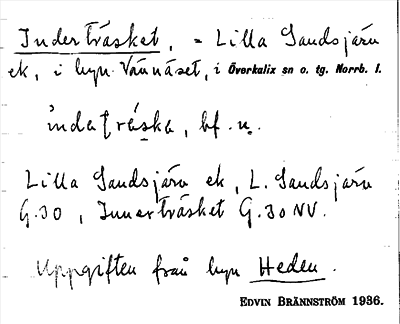 Inderträsket, = Lilla Sandsjärv
ek, i byn Vännäset, i Överkalix sn o. tg. Norrb. l.
ìndaţrás̱ka, bf. ṵ.
Lilla Sandsjärv ek, L. Sandsjärv
G.30, Innerträsket G.30 NV.
Uppgiften från byn Heden.
EDVIN BRÄNNSTRÖM 1936.